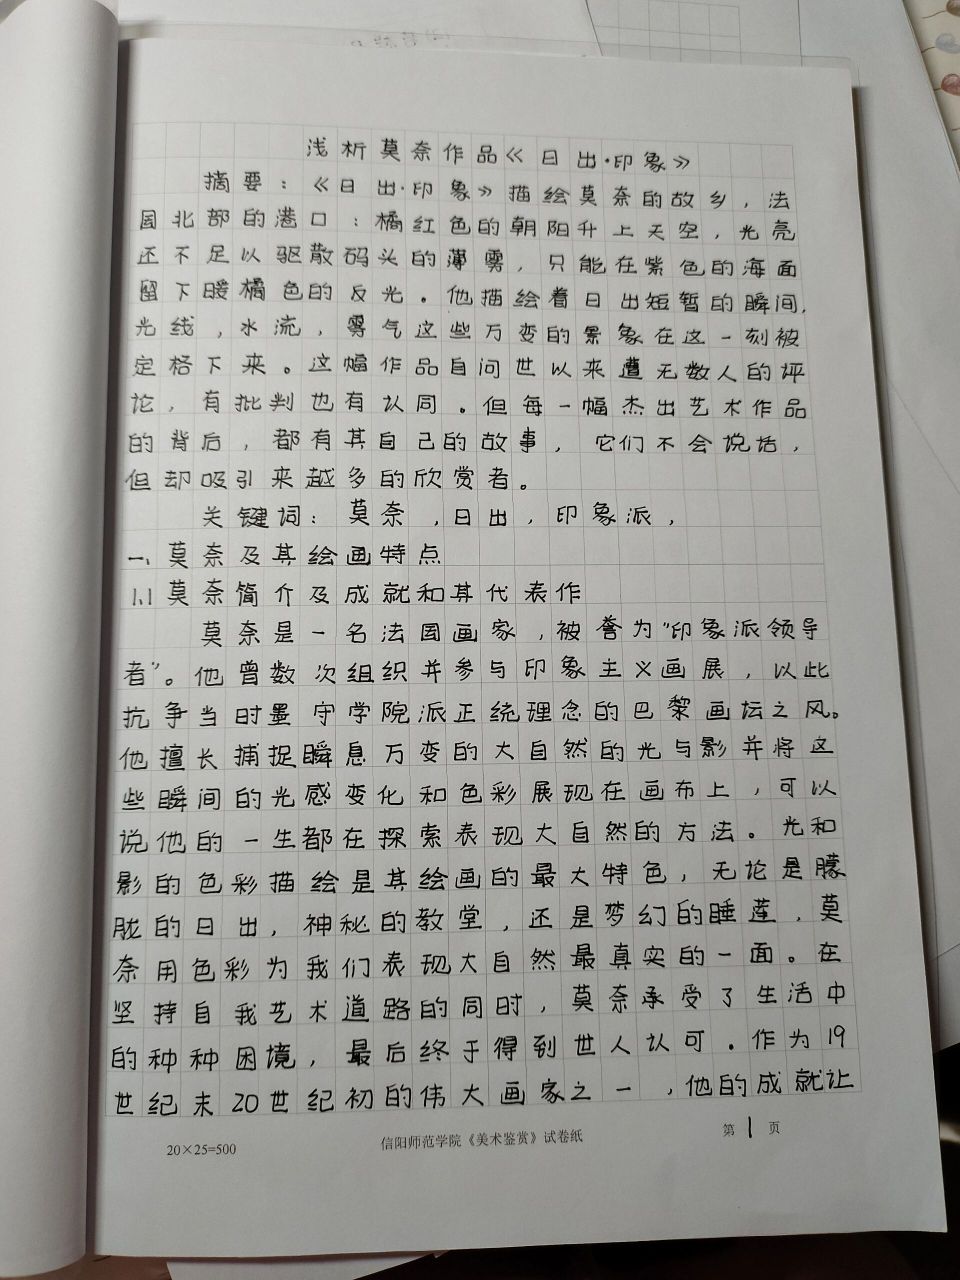 浅析莫奈作品《日出·印象》
摘要：《日出·印象》描绘莫奈的故乡，法
国北部的港口：橘红色的朝阳升上天空，光亮
还不足以驱散码头的薄雾，只能在紫色的海面
留下暖橘色的反光。他描绘着日出短暂的瞬间，
光线，水流，雾气这些万变的景象在这一刻被
定格下来。这幅作品自问世以来遭无数人的评
论，有批判也有认同。但每一幅杰出艺术作品
的背后，都有其自己的故事，它们不会说话，
但却吸引来越多的欣赏者。
关键词：莫奈，日出，印象派，
一、莫奈及其绘画特点
1.1莫奈简介及成就和其代表作
莫奈是一名法国画家，被誉为“印象派领导
者”。他曾数次组织并参与印象主义画展，以此
抗争当时墨守学院派正统理念的巴黎画坛之风。
他擅长捕捉瞬息万变的大自然的光与影并将这
些瞬间的光感变化和色彩展现在画布上，可以
说他的一生都在探索表现大自然的方法。光和
影的色彩描绘是其绘画的最大特色，无论是朦
胧的日出，神秘的教堂，还是梦幻的睡莲，莫
奈用色彩为我们表现大自然最真实的一面。在
坚持自我艺术道路的同时，莫奈承受了生活中
的种种困境，最后终于得到世人认可。作为19
世纪末20世纪初的伟大画家之一，他的成就让
20×25=500
信阳师范学院《美术鉴赏》试卷纸
第1页